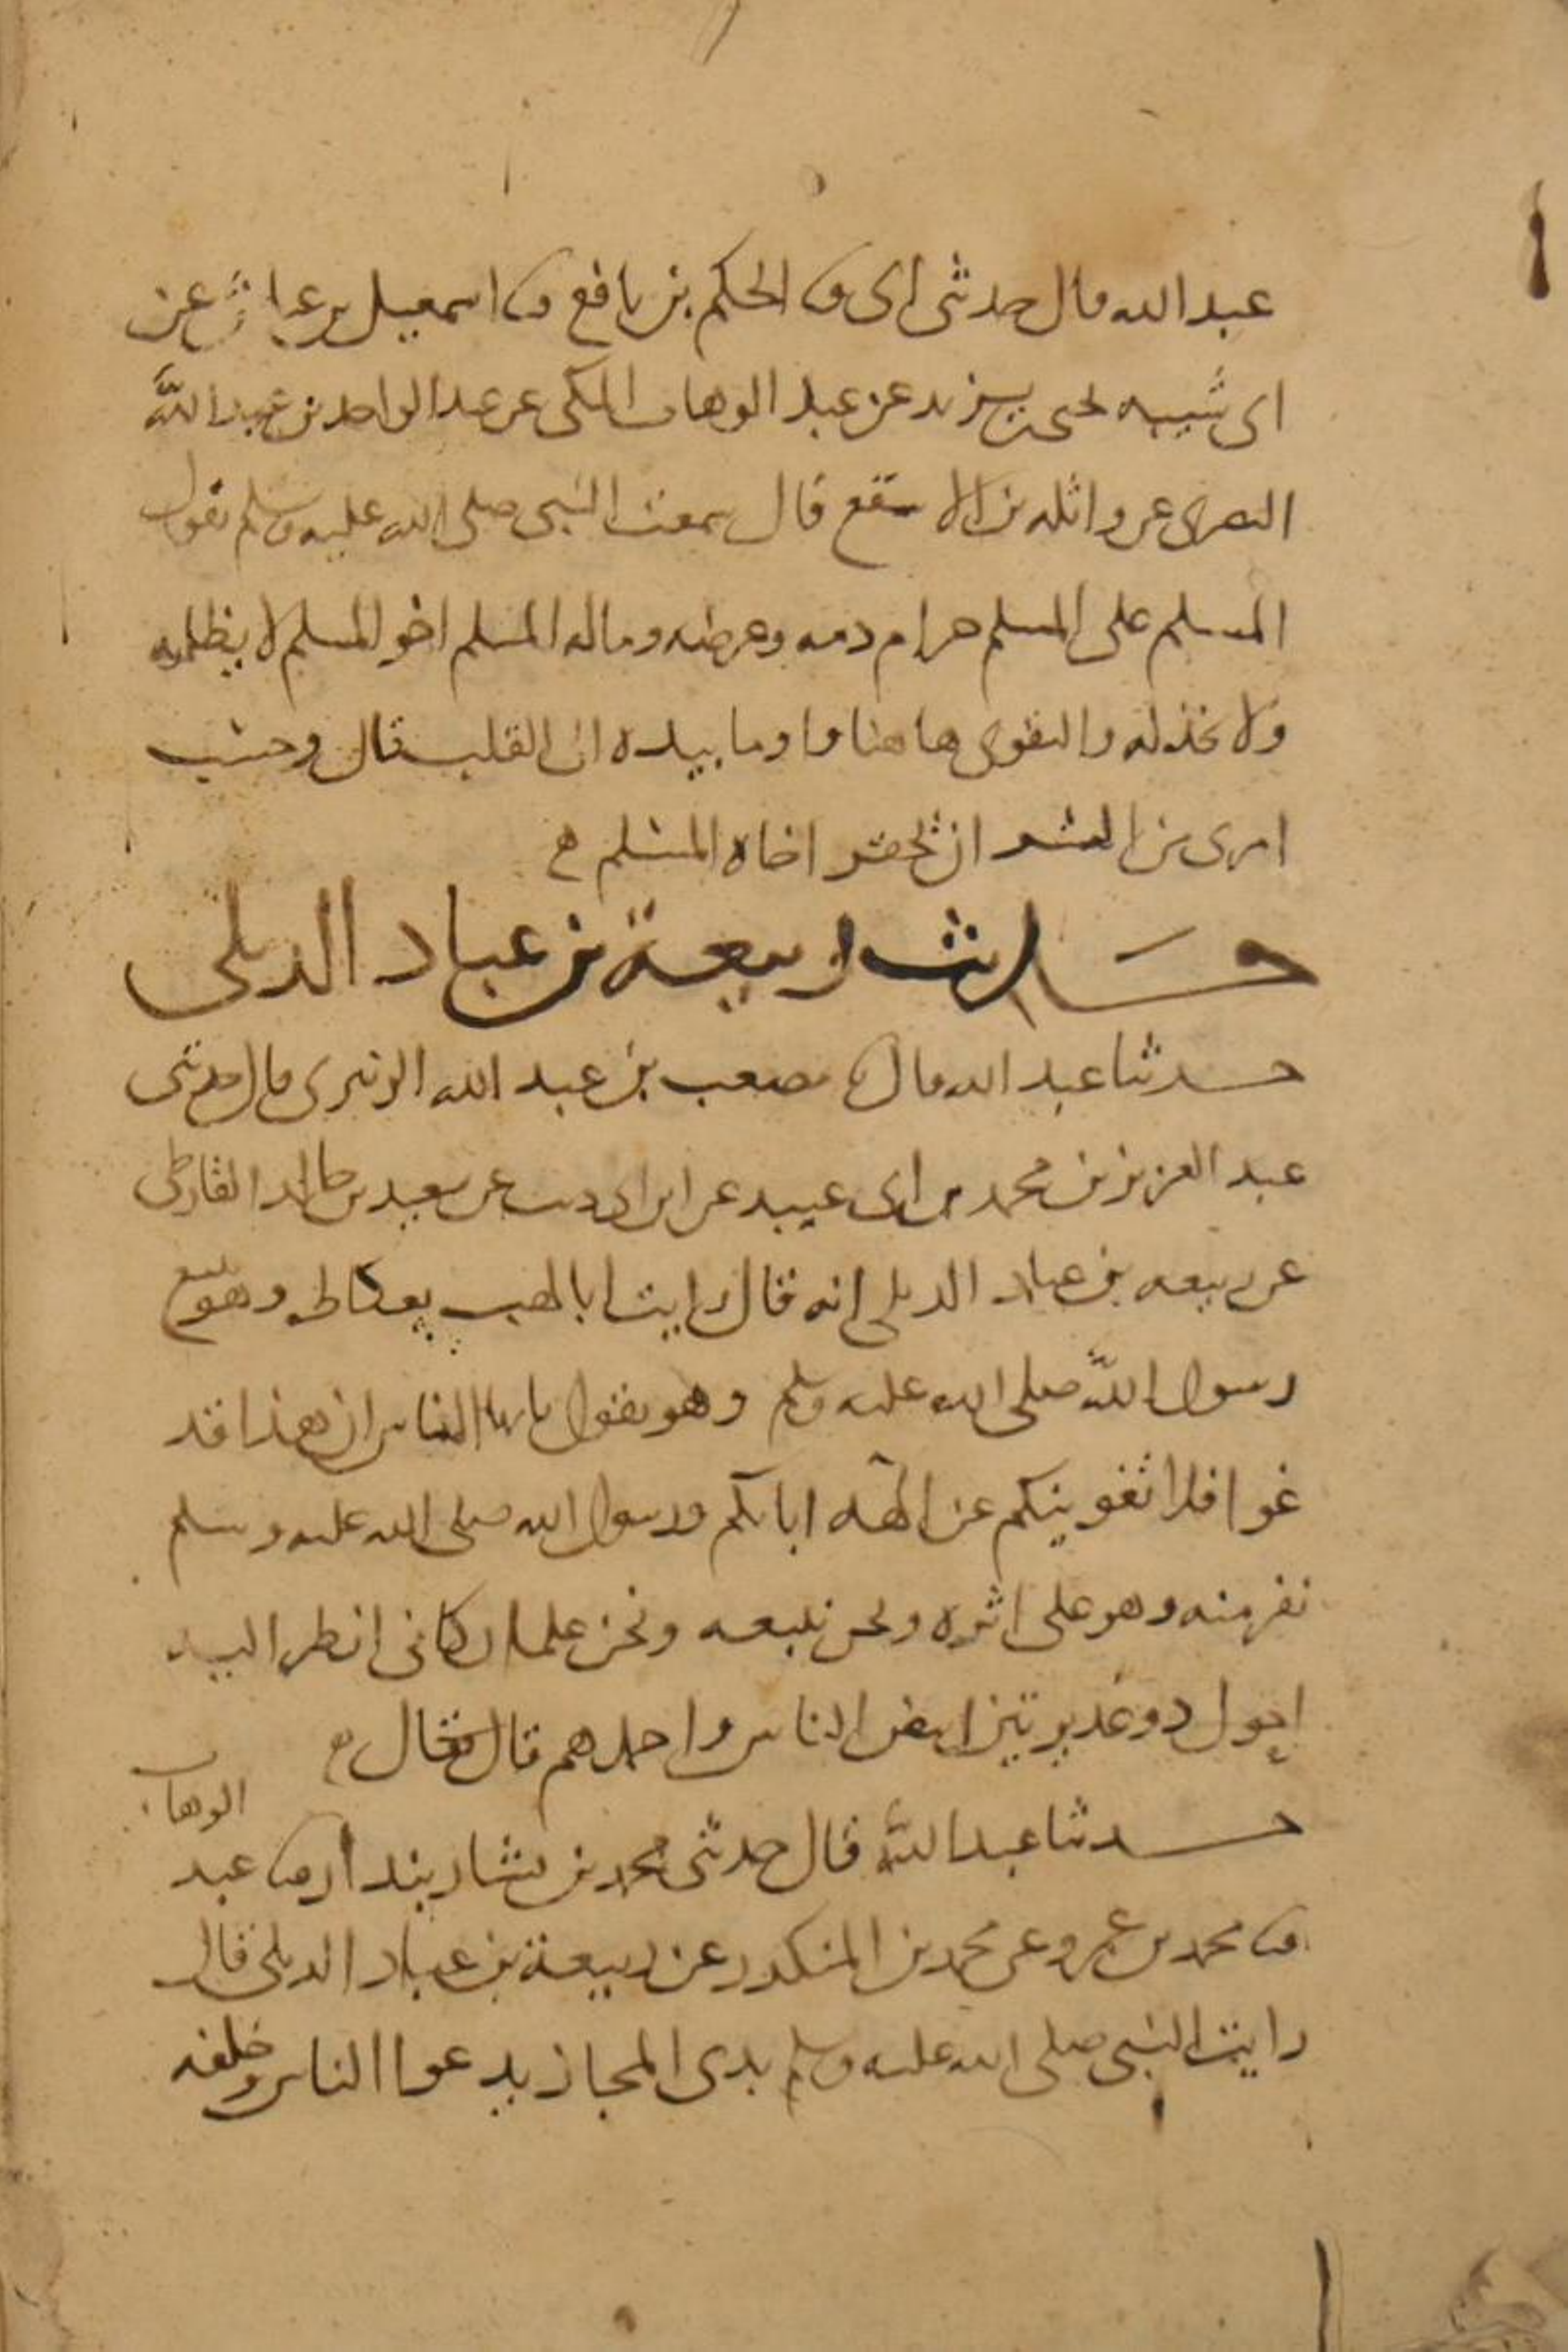 عبد الله قال حدثنى ابى ثنا الحكم بن نافع ثنا اسمعيل بن عياش عن
ابى شيبه يحيى بن يزيد عن عبد الوهاب المكى عن عبد الواحد بن عبد الله
النصرى عن واثله بن الاسقع قال سمعت النبى صلى الله عليه وسلم يقول
المسلم على المسلم حرام دمه وعرضه وماله المسلم اخو المسلم لا يظلمه
ولا يخذله والتقوى هاهنا واوما بيده الى القلب قال وحسب
امرى من الشر ان يحقر اخاه المسلم
حديث ربيعة بن عباد الديلى
حدثنا عبد الله قال ثنا مصعب بن عبد الله الزبيرى قال حدثنى
عبد العزيز بن محمد بن ابى عبيد عن ابن ابى ذيب عن سعيد بن خالد القارظى
عن ربيعه بن عباد الديلى انه قال رايت ابا لهب بعكاظ وهو يتبع
رسول الله صلى الله عليه وسلم وهو يقول يا ايها الناس ان هذا قد
غوا فلا تغوينكم عن الهه ابائكم ورسول الله صلى الله عليه وسلم
نفر منه وهو على اثره ونحن نتبعه ونحن غلمان كانى انظر اليه
احول ذو غديرتين ابيض الناس واجملهم قال فقال
حدثنا عبد الله قال حدثنى محمد بن بشار بندار ثنا عبد الوهاب
ثنا محمد بن عمرو عن محمد بن المنكدر عن ربيعة بن عباد الديلى قال
رايت النبى صلى الله عليه وسلم بذى المجاز يدعوا الناس وخلفه